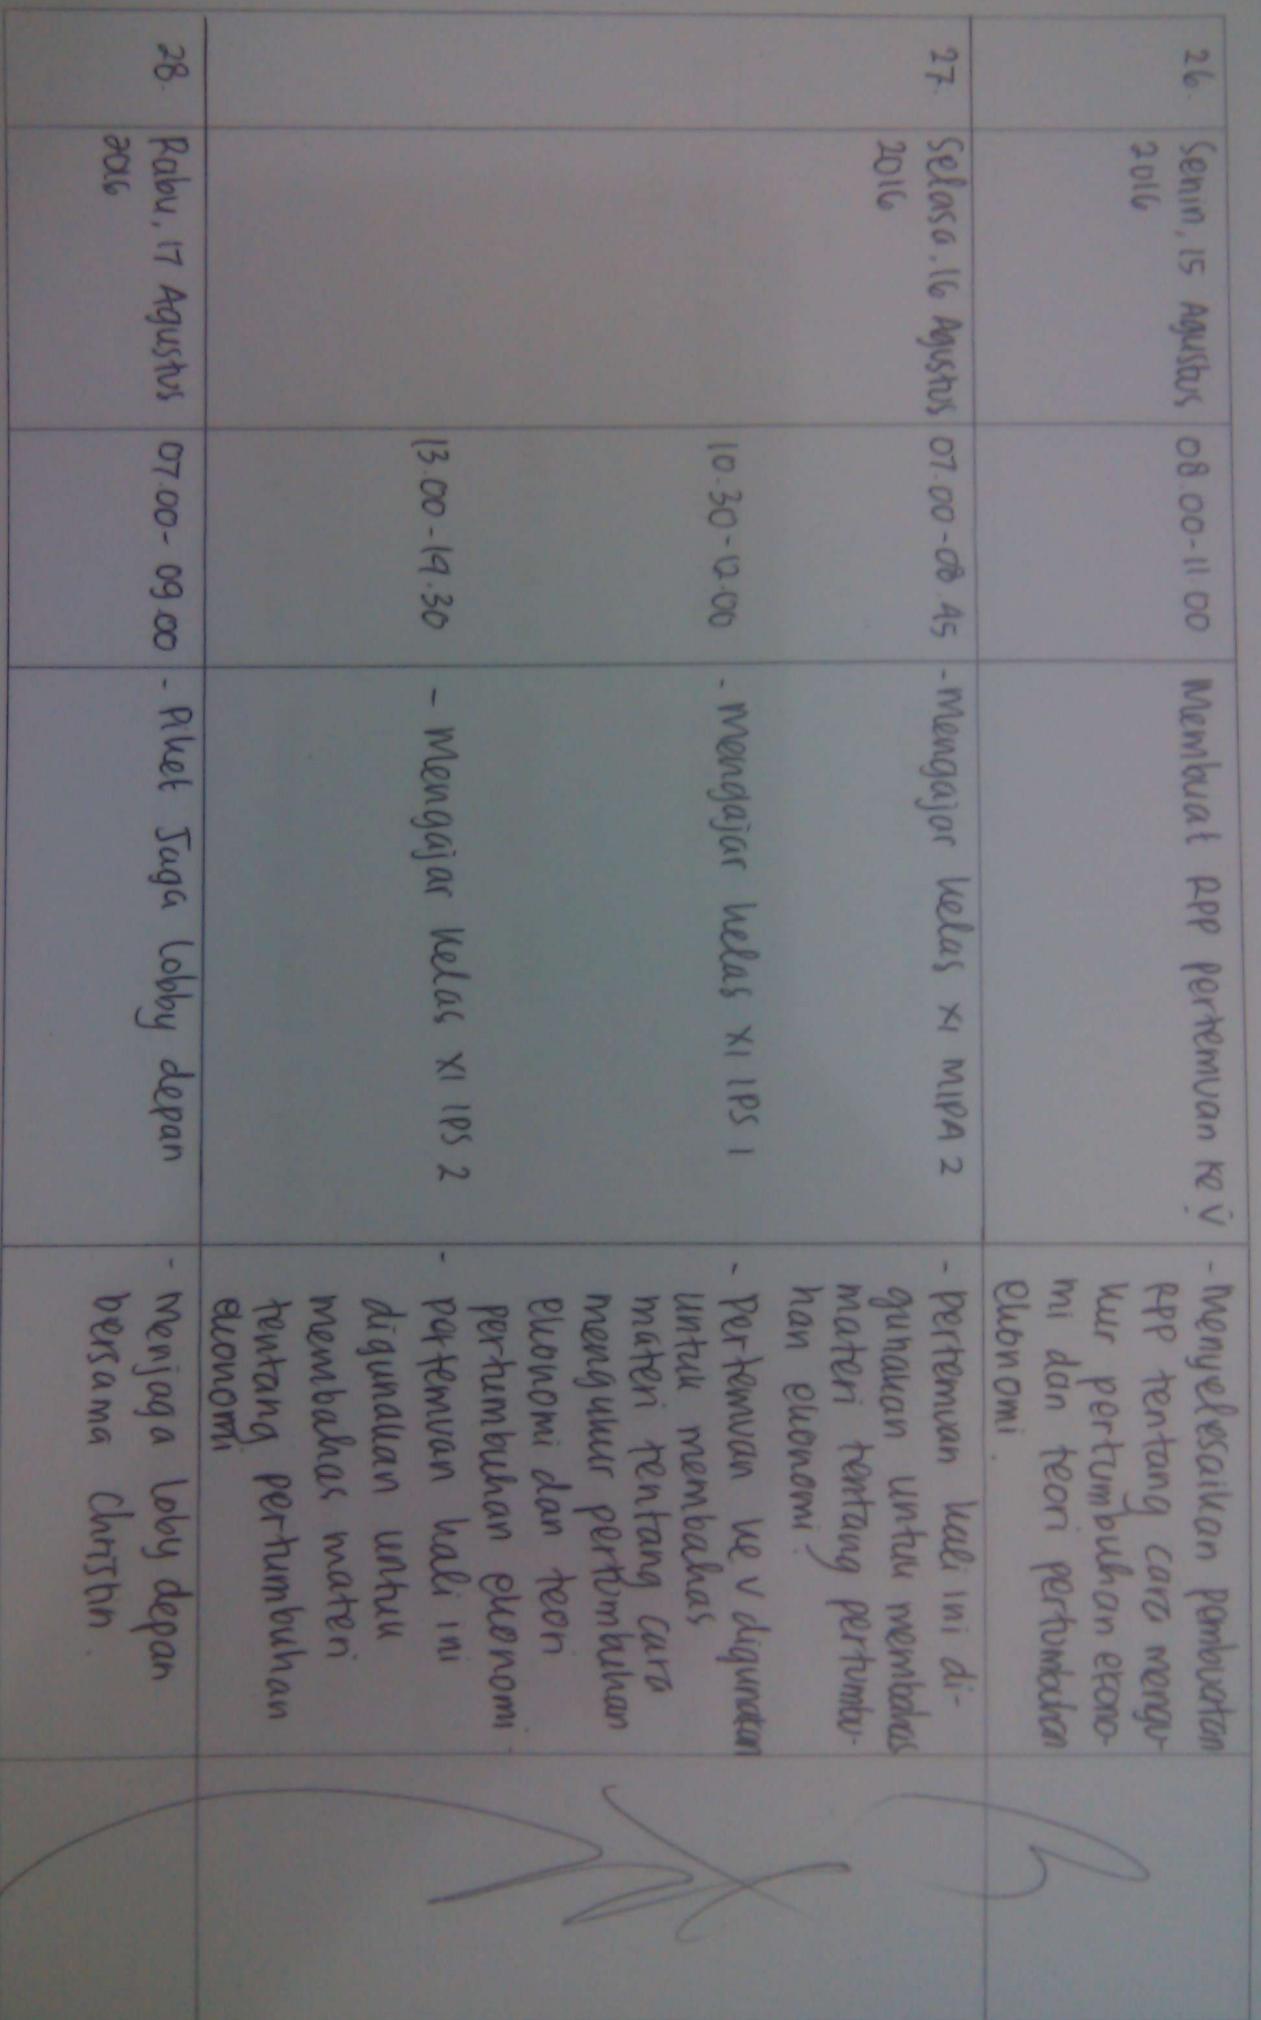 26.
Senin, 15 Agustus
2016
08.00-11.00
Membuat RPP pertemuan ke V
- Menyelesaikan pembuatan
RPP tentang cara mengu
kur pertumbuhan ekono-
mi dan teori pertumbuhan
ekonomi.
27.
Selasa, 16 Agustus
2016
07.00-08.45
- Mengajar kelas XI MIPA 2
- pertemuan kali ini di-
gunakan untuk membahas
materi tentang pertumbu-
han ekonomi.
10.30-12.00
- Mengajar kelas XI IPS 1
- Pertemuan ke V digunakan
untuk membahas
materi tentang cara
mengukur pertumbuhan
ekonomi dan teori
pertumbuhan ekonomi.
13.00-14.30
- Mengajar kelas XI IPS 2
- Pertemuan kali ini
digunakan untuk
membahas materi
tentang pertumbuhan
ekonomi
28.
Rabu, 17 Agustus
2016
07.00-09.00
- Piket Jaga lobby depan
- Menjaga loby depan
bersama Christin.